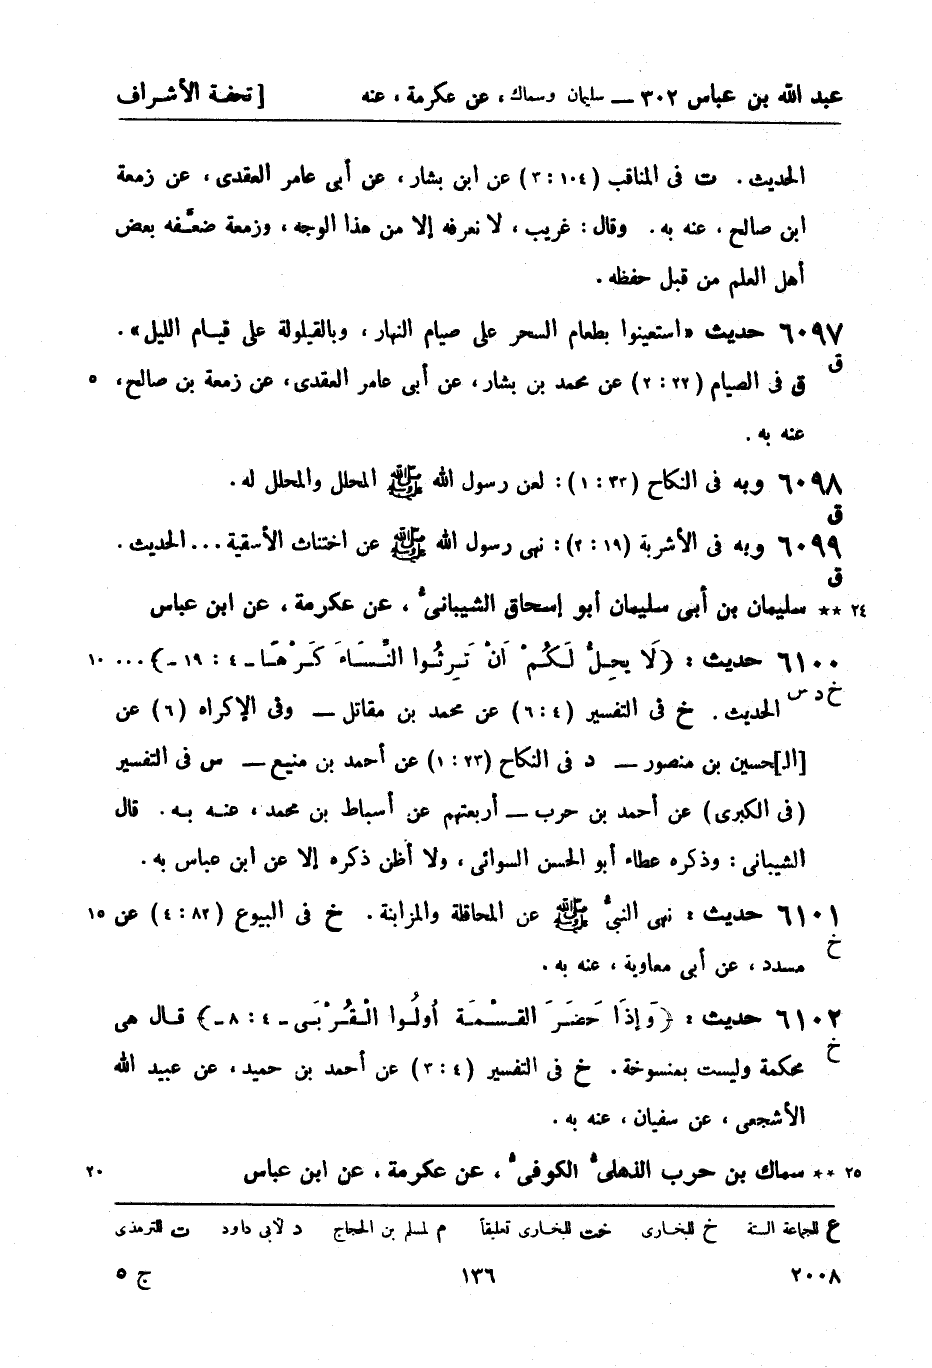 عبد الله بن عباس ٣٠٢ — سليمان وسماك ، عن عكرمة ، عنه [ تحفة الأشراف
الحديث . ت فى المناقب (١٠٤ : ٣) عن ابن بشار ، عن أبى عامر العقدى ، عن زمعة
ابن صالح ، عنه به . وقال : غريب ، لا نعرفه إلا من هذا الوجه ، وزمعة ضعّفه بعض
أهل العلم من قبل حفظه .
٦٠٩٧ حديث «استعينوا بطعام السحر على صيام النهار ، وبالقيلولة على قيـام الليل» .
ق
ق فى الصيام (٢٢ : ٢) عن محمد بن بشار ، عن أبى عامر العقدى ، عن زمعة بن صالح ، ٥
عنه به .
٦٠٩٨ وبه فى النكاح (٣٣ : ١) : لعن رسول الله ﷺ المحلل والمحلل له .
ق
٦٠٩٩ وبه فى الأشربة (١٩ : ٢) : نهى رسول الله ﷺ عن اختناث الأسقية ... الحديث .
ق
٢٤ ** سليمان بن أبى سليمان أبو إسحاق الشيبانىُّ ، عن عكرمة ، عن ابن عباس
٦١٠٠ حديث : {لَا يحِـلُّ لَـكُـمْ اَنْ تَـرِثُـوا النِّـسَـاءَ كَـرْهًـا ـ ٤ : ١٩ ـ} ... ١٠
خ د س
الحديث . خ فى التفسير (٤ : ٦) عن محمد بن مقاتل — وفى الإكراه (٦) عن
[الـ]حسين بن منصور — د فى النكاح (٢٣ : ١) عن أحمد بن منيع — س فى التفسير
(فى الكبرى) عن أحمد بن حرب — أربعتهم عن أسباط بن محمد ، عنـه بـه . قال
الشيبانى : وذكره عطاء أبو الحسن السوائى ، ولا أظن ذكره إلا عن ابن عباس به .
٦١٠١ حديث : نهى النبىُّ ﷺ عن المحاقلة والمزابنة . خ فى البيوع (٨٢ : ٤) عن ١٥
خ
مسدد ، عن أبى معاوية ، عنه به .
٦١٠٢ حديث : {وَإِذَا حَضَرَ القِسْمَةَ أُولُـوا الْقُـرْبَـى ـ ٤ : ٨ ـ} قـال هى
خ
محكمة وليست بمنسوخة . خ فى التفسير (٤ : ٣) عن أحمد بن حميد ، عن عبيد الله
الأشجعى ، عن سفيان ، عنه به .
٢٥ ** سماك بن حرب الذهلىُّ الكوفىُّ ، عن عكرمة ، عن ابن عباس ٢٠
ع للجماعة الستة خ للبخارى خت للبخارى تعليقاً م لمسلم بن الحجاج د لأبى داود ت للترمذى
٢٠٠٨ ١٣٦ ج ٥